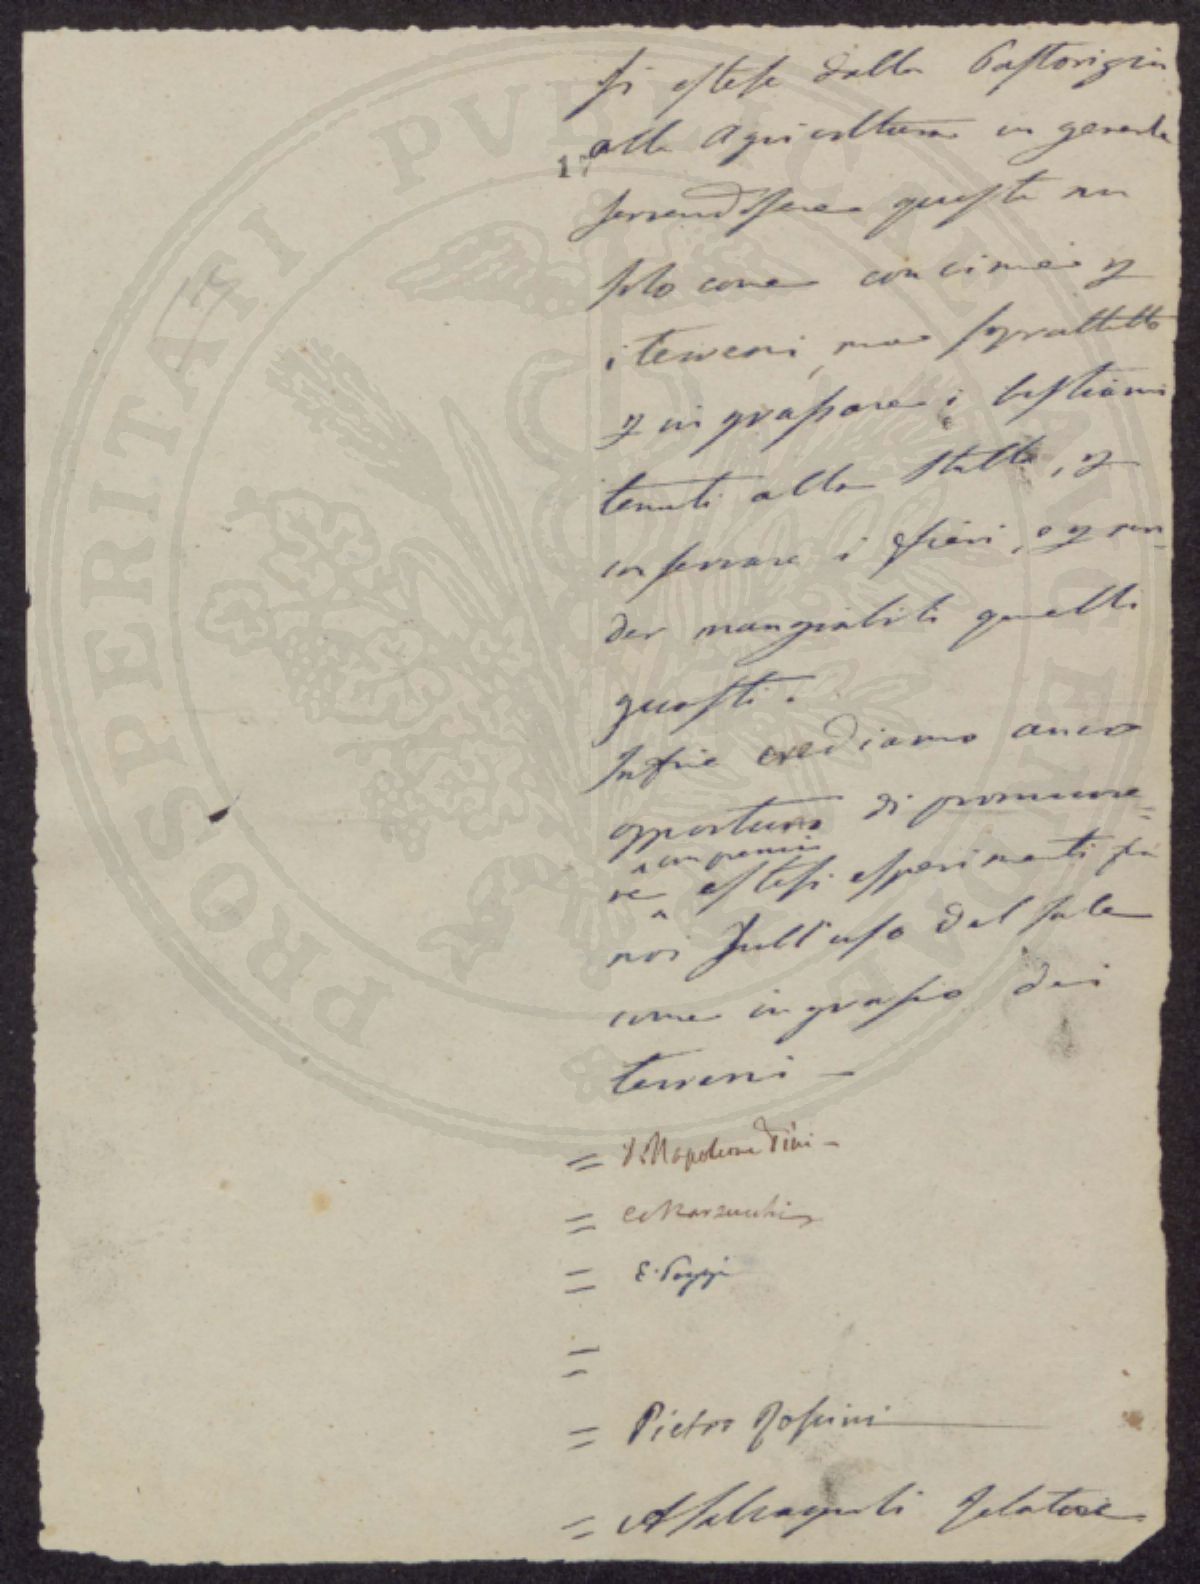 si estese dalla Pastorizia
alla Agricoltura in generale
17
servendosene questa non
solo come concime p
i terreni, ma soprattutto
p ingrassare i bestiami
tenuti alla stalla, p
conservare i fieni, o p ren-
der mangiabili quelli
guasti.
Infine crediamo anco
opportuno di promuove=
con premii
re estesi esperimenti fra
noi sull'uso del sale
come ingrasso dei
terreni —
= Napoleone Pini —
= C. Marzucchi
= E. Poggi
=
= Pietro Rossini
= A Salvagnoli Relatore
PROSPERITATI PVBLICAE AVGENDAE